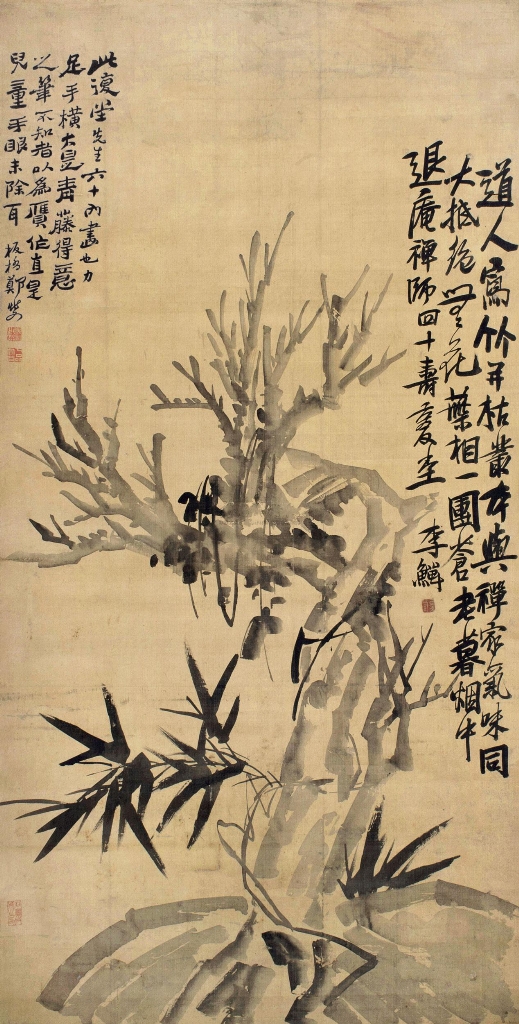 道人寫竹并枯叢本與禪家氣味同
大抵絶無花葉相一團蒼老暮烟中
退庵禪師四十壽 復堂李鱓
此復堂先生六十內畫也力
足手橫大是青藤得意
之筆不知者以為贗作直是
兒童手眼未除耳 板橋鄭燮